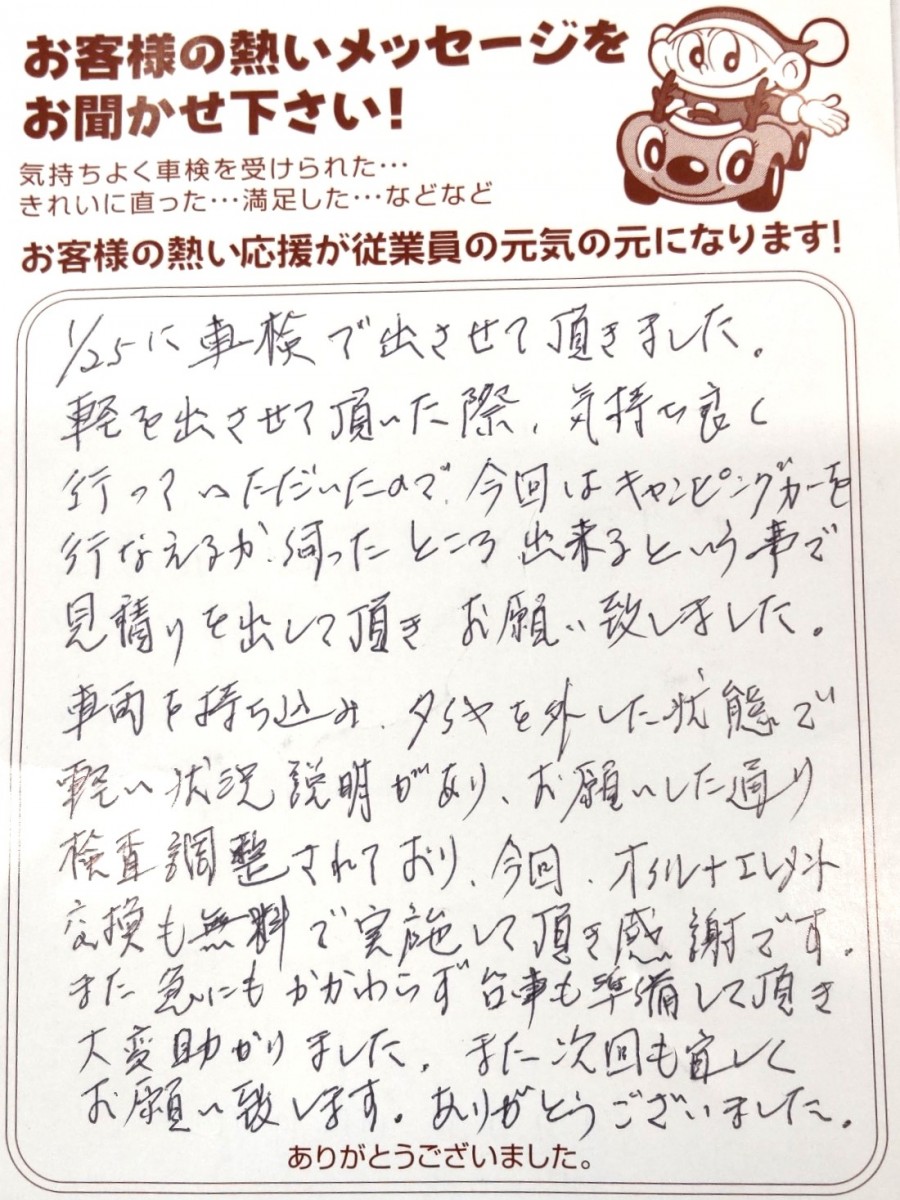 お客様の熱いメッセージを
お聞かせ下さい!
気持ちよく車検を受けられた…
きれいに直った…満足した…などなど
お客様の熱い応援が従業員の元気の元になります!
1/25に車検で出させて頂きました。
軽を出させて頂いた際、気持ち良く
行っていただいたので、今回はキャンピングカーを
行なえるか、伺ったところ、出来るという事で
見積りを出して頂き お願い致しました。
車両を持ち込み、タイヤを外した状態で
軽い状況説明があり、お願いした通り
検査調整されており、今回、オイル+エレメント
交換も無料で実施して頂き感謝です。
また急にもかかわらず台車も準備して頂き
大変助かりました。また次回も宜しく
お願い致します。ありがとうございました。
ありがとうございました。